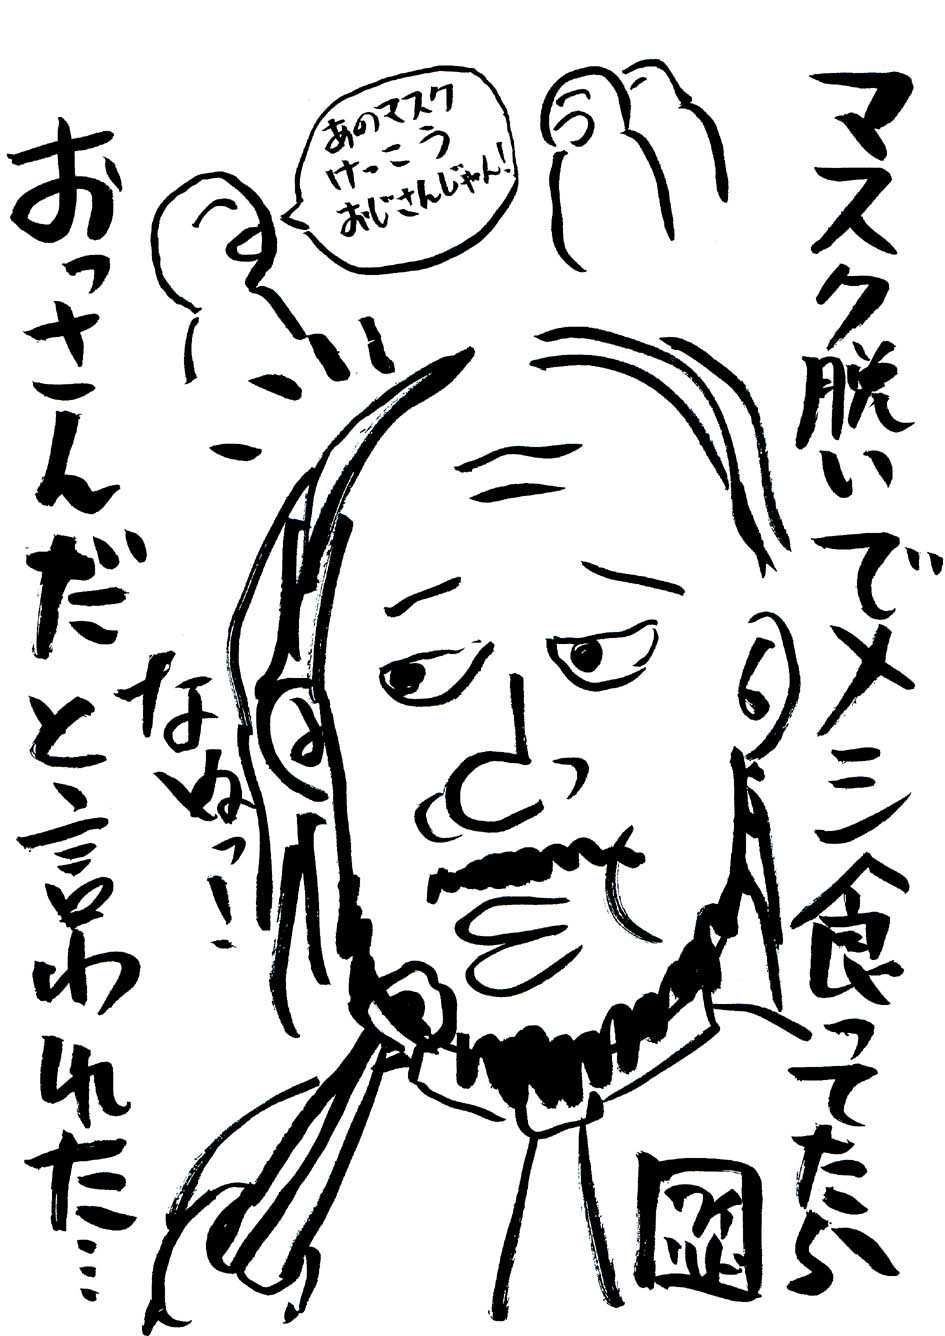 マスク脱いでメシ食ってたら
あのマスク
けっこう
おじさんじゃん!
なぬっ!
おっさんだと言われた…